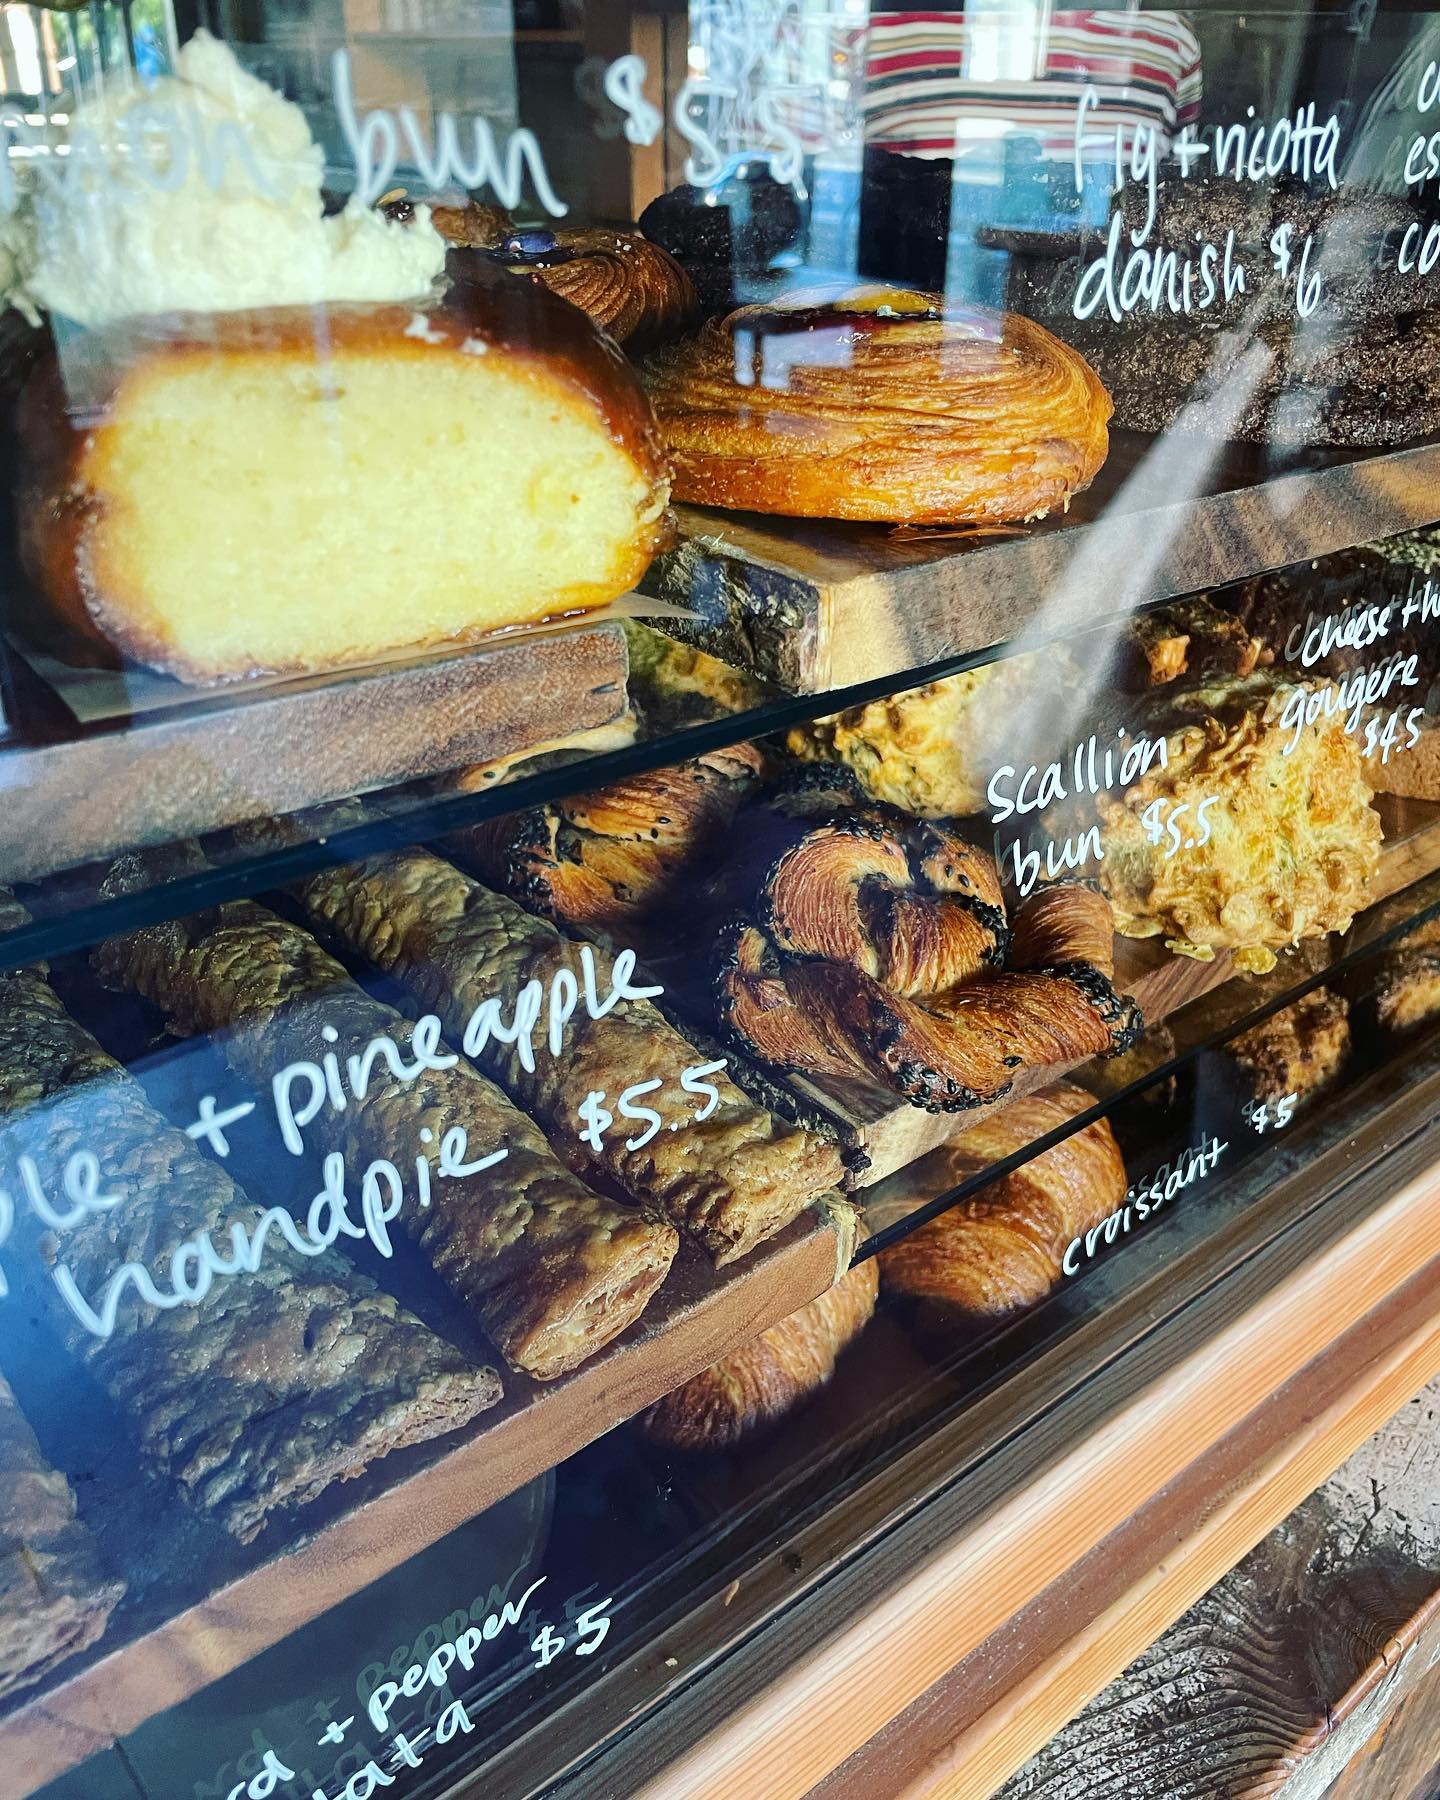 bun $5.5
fig + ricotta
danish $6
cheese + h
gougere
$4.5
scallion
bun $5.5
ple + pineapple
handpie $5.5
croissant $5
rd + pepper $5
iata